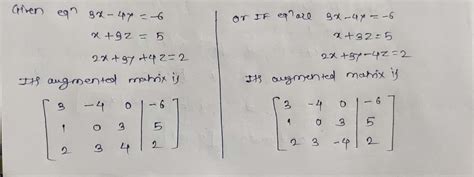 Given eqn 3x-4y=-6
x+3z=5
2x+3y+4z=2
Its augmented matrix is
[3 -4 0 | -6
1 0 3 | 5
2 3 4 | 2]
or If eqn are 3x-4y=-6
x+3z=5
2x+3y-4z=2
Its augmented matrix is
[3 -4 0 | -6
1 0 3 | 5
2 3 -4 | 2]